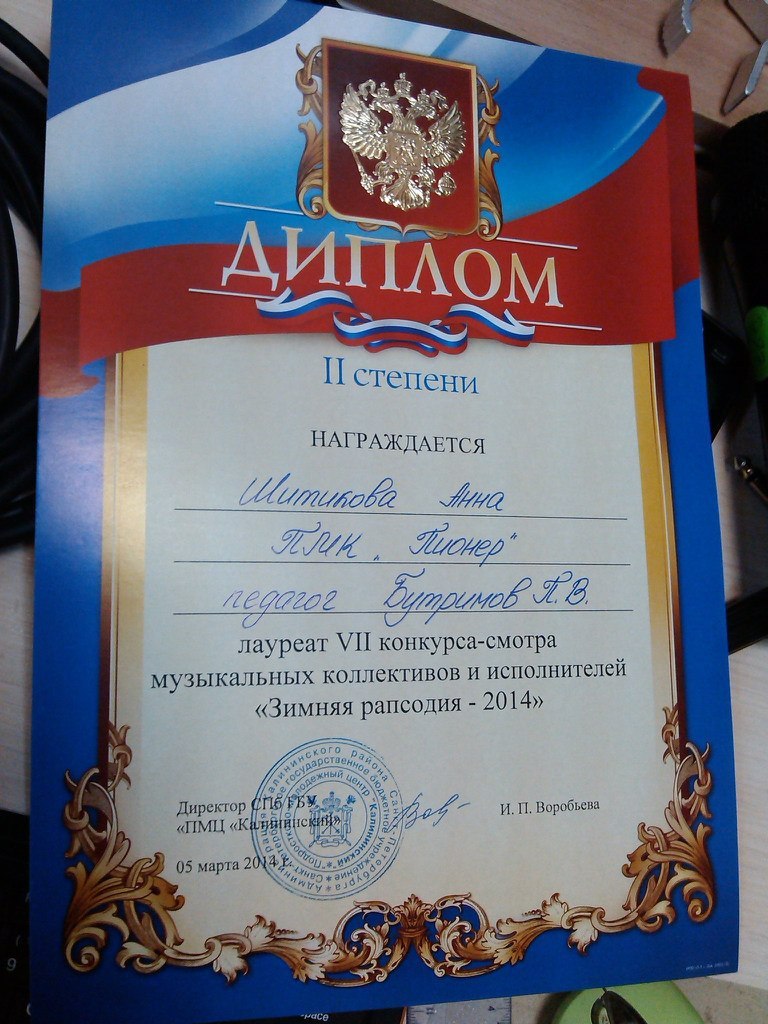 ДИПЛОМ
II степени
НАГРАЖДАЕТСЯ
Шитикова Анна
ПМК „Пионер"
педагог Бутримов П.В.
лауреат VII конкурса-смотра
музыкальных коллективов и исполнителей
«Зимняя рапсодия - 2014»
Директор СПб ГБУ
«ПМЦ «Калининский»
И. П. Воробьева
05 марта 2014 г.
Администрация Калининского района Санкт-Петербурга
Санкт-Петербургское государственное бюджетное учреждение
"Подростково-молодежный центр "Калининский"